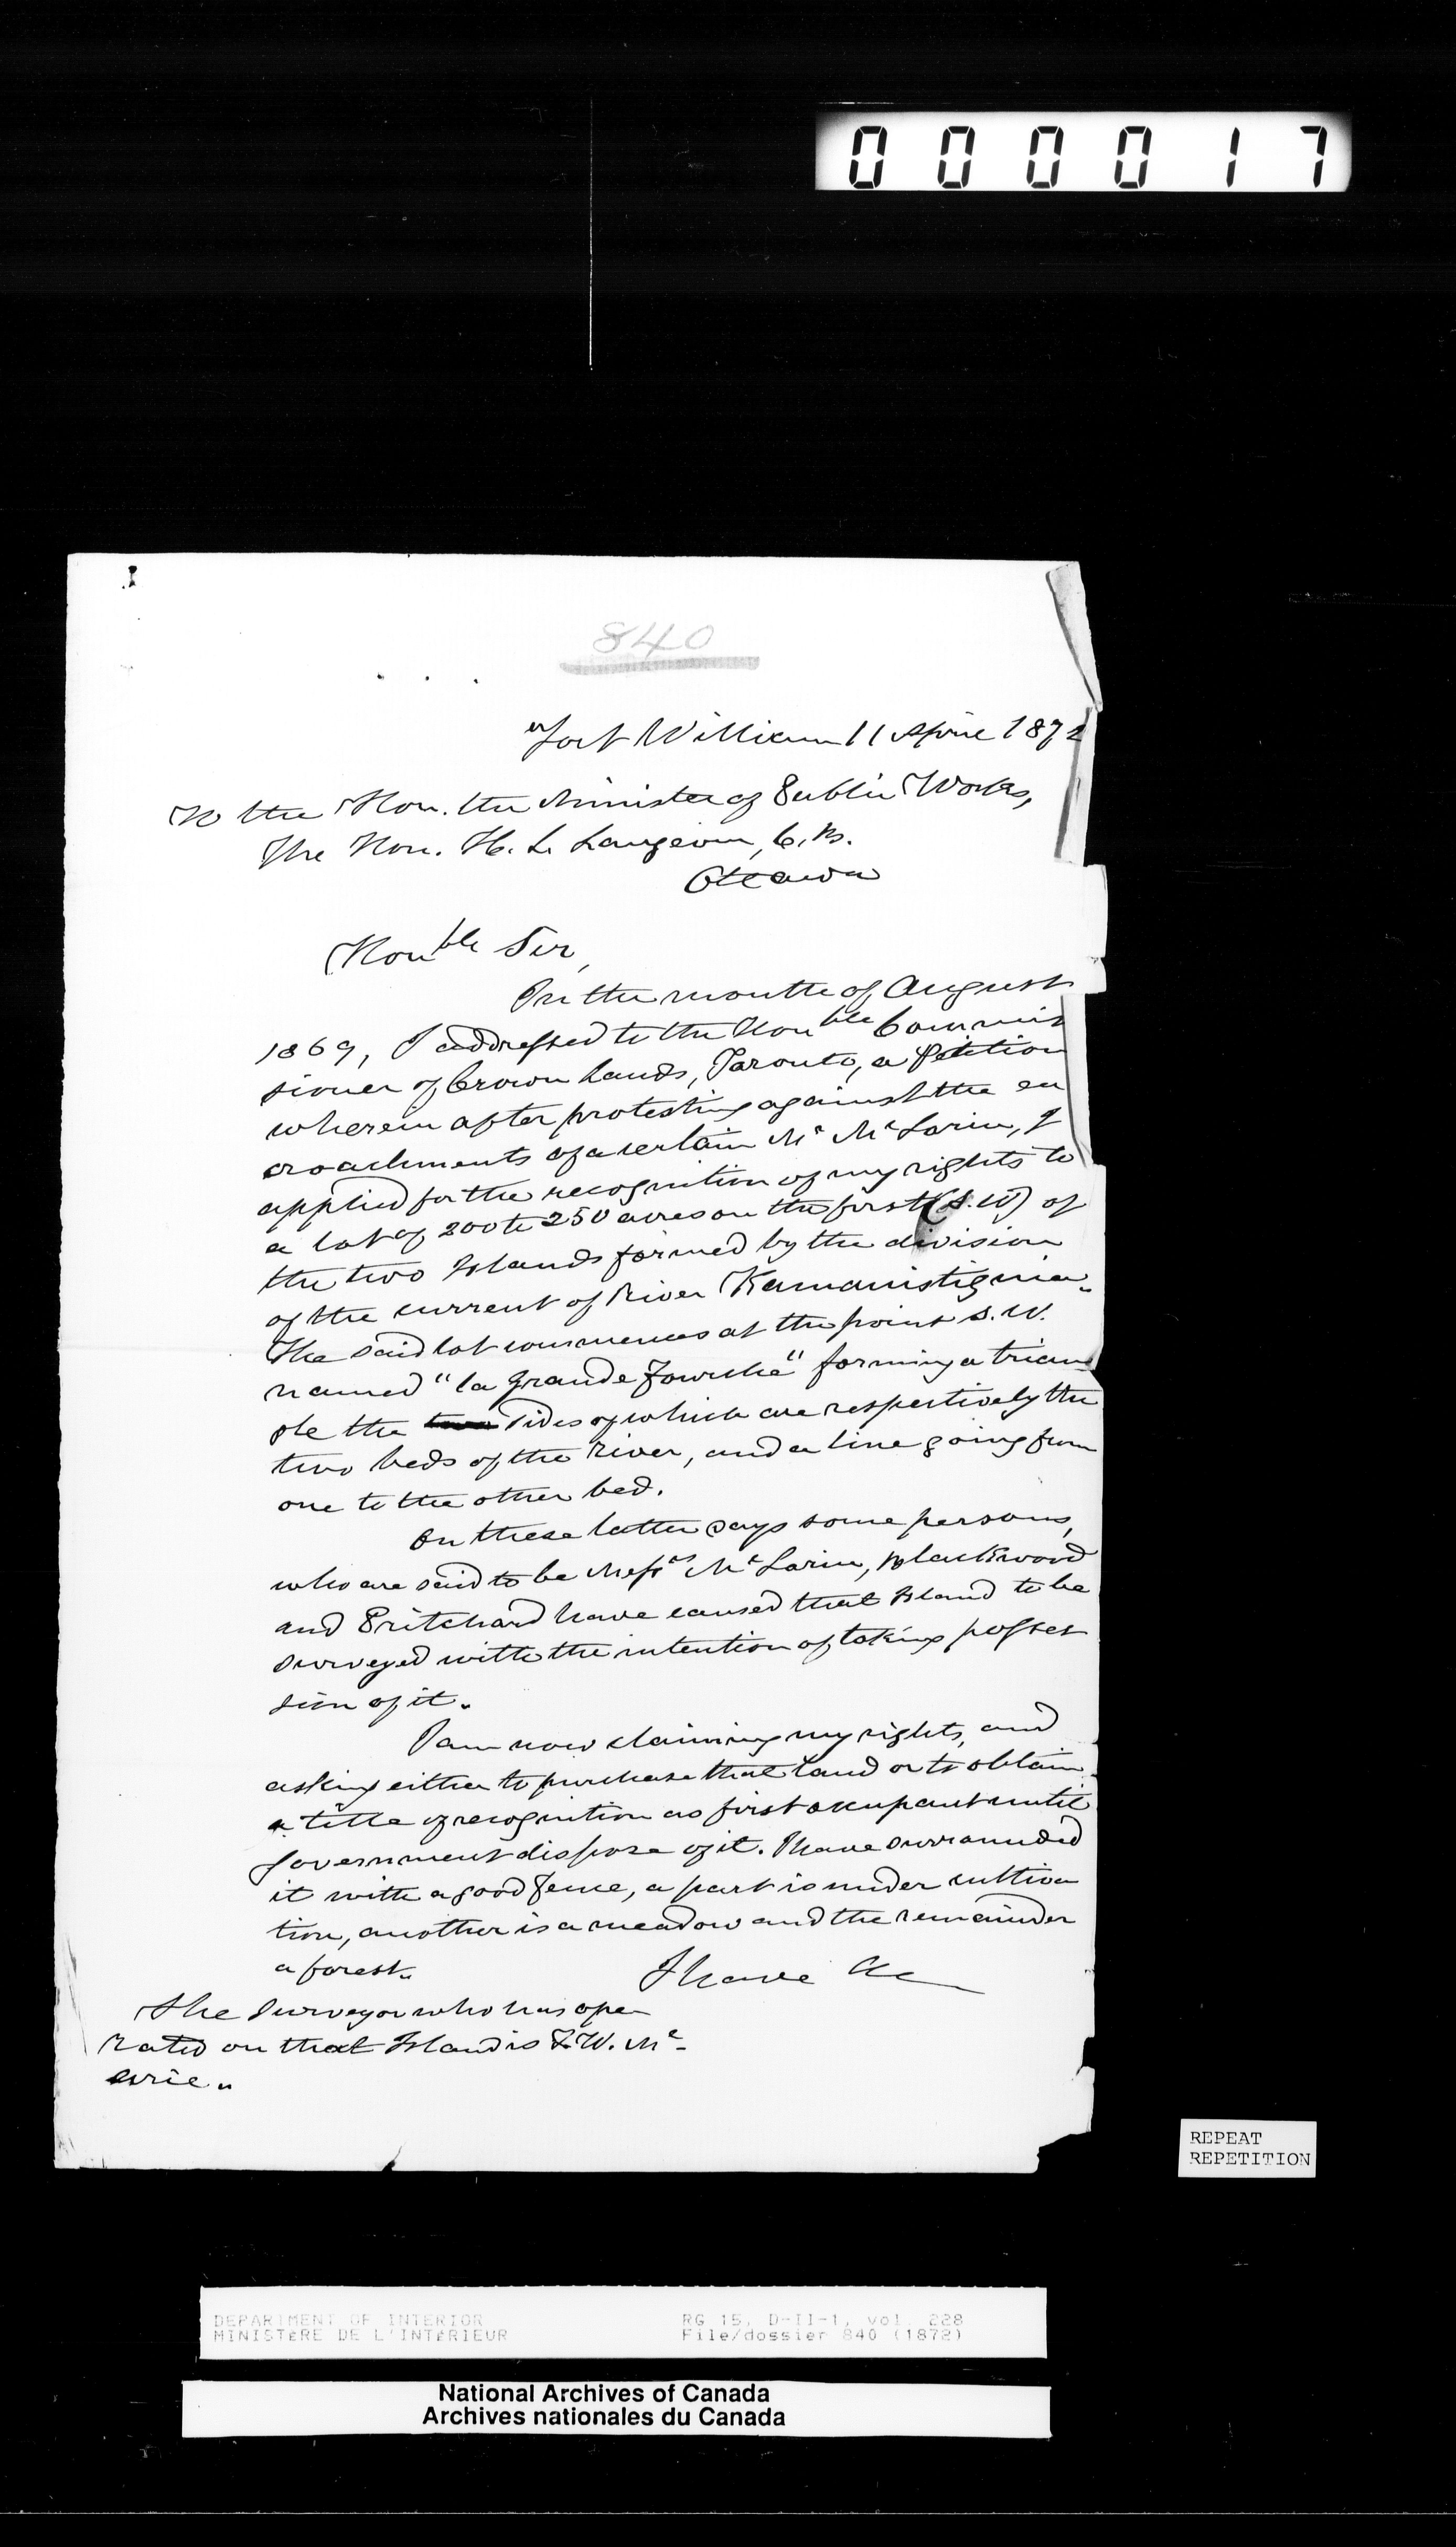 000017
840
Fort William 11 April 1872
To the Hon. the Minister of Public Works,
The Hon. H. L. Langevin, C.B.
Ottawa
Hon^ble Sir,
In the month of August
1869, I addressed to the Hon^ble Commis
sioner of Crown Lands, Toronto, a Petition
wherein after protesting against the en
croachments of a certain Mr McLarin, I
applied for the recognition of my rights to
a lot of 200 to 250 acres on the first (S.W) of
the two Islands formed by the division
of the current of River Kamanistiguia.
The said lot commences at the point S.W.
named "la Grande Fourche" forming a trian
gle the sides of which are respectively the
two beds of the River, and a line going from
one to the other bed.
On these latter days some persons,
who are said to be Messrs McLarin, Blackwood
and Pritchard have caused that Island to be
surveyed with the intention of taking posses
sion of it.
I am now claiming my rights, and
asking either to purchase that land or to obtain
a title of recognition as first occupant until
Government dispose of it. I have surrounded
it with a good fence, a part is under cultiva
tion, another is a meadow and the remainder
a forest.
I have &c
The Surveyor who has ope
rated on that Island is W. Mc
REPEAT
REPETITION
DEPARTMENT OF INTERIOR
MINISTÈRE DE L'INTÉRIEUR
RG 15, D-II-1, vol. 228
File/dossier 840 (1872)
National Archives of Canada
Archives nationales du Canada